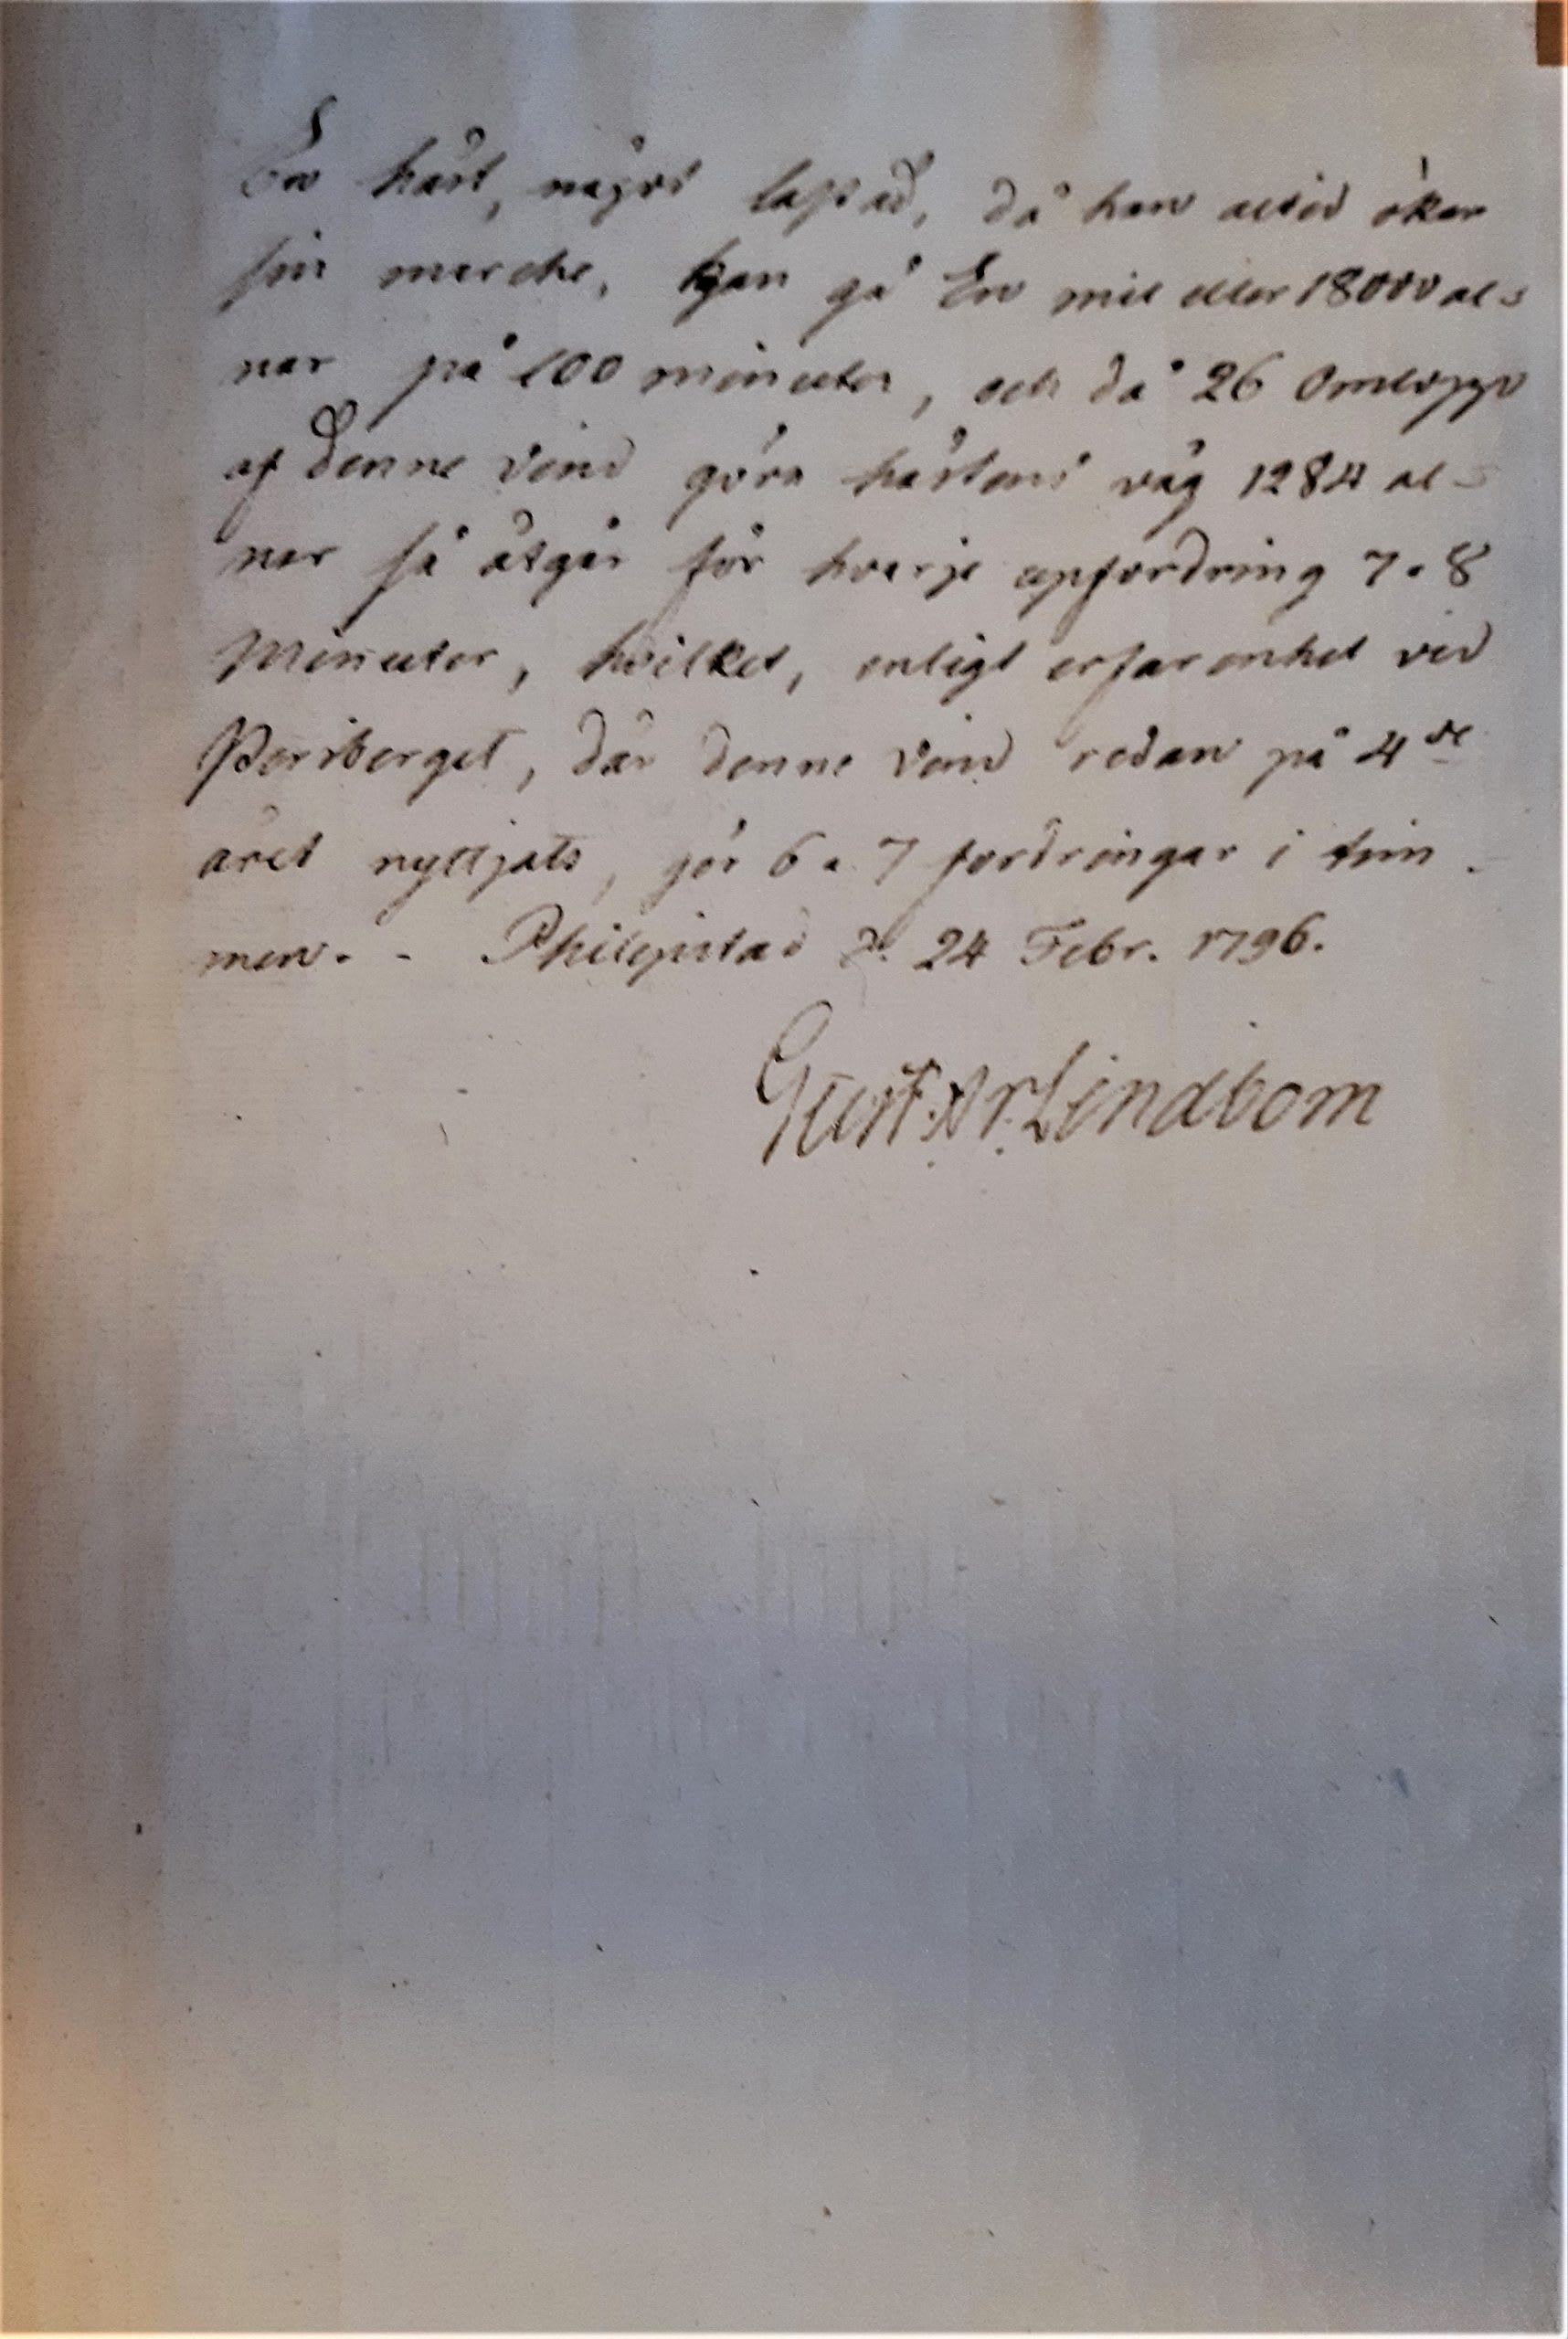 En häst, något lastad, då han altid ökar
sin marche, kan gå En mil eller 18000 al=
nar på 100 minuter, och då 26 Omlopp
af Denne vind göra hästens väg 1284 al=
nar så åtgår för hvarje upfordring 7 a 8
Minuter, hvilket, enligt erfarenhet vid
Persberget, där denne vind redan på 4de
året nyttjats, gör 6 a 7 fordringar i tim-
men. - Philipstad d. 24 Febr. 1796.
Gust. Ar. Lindbom